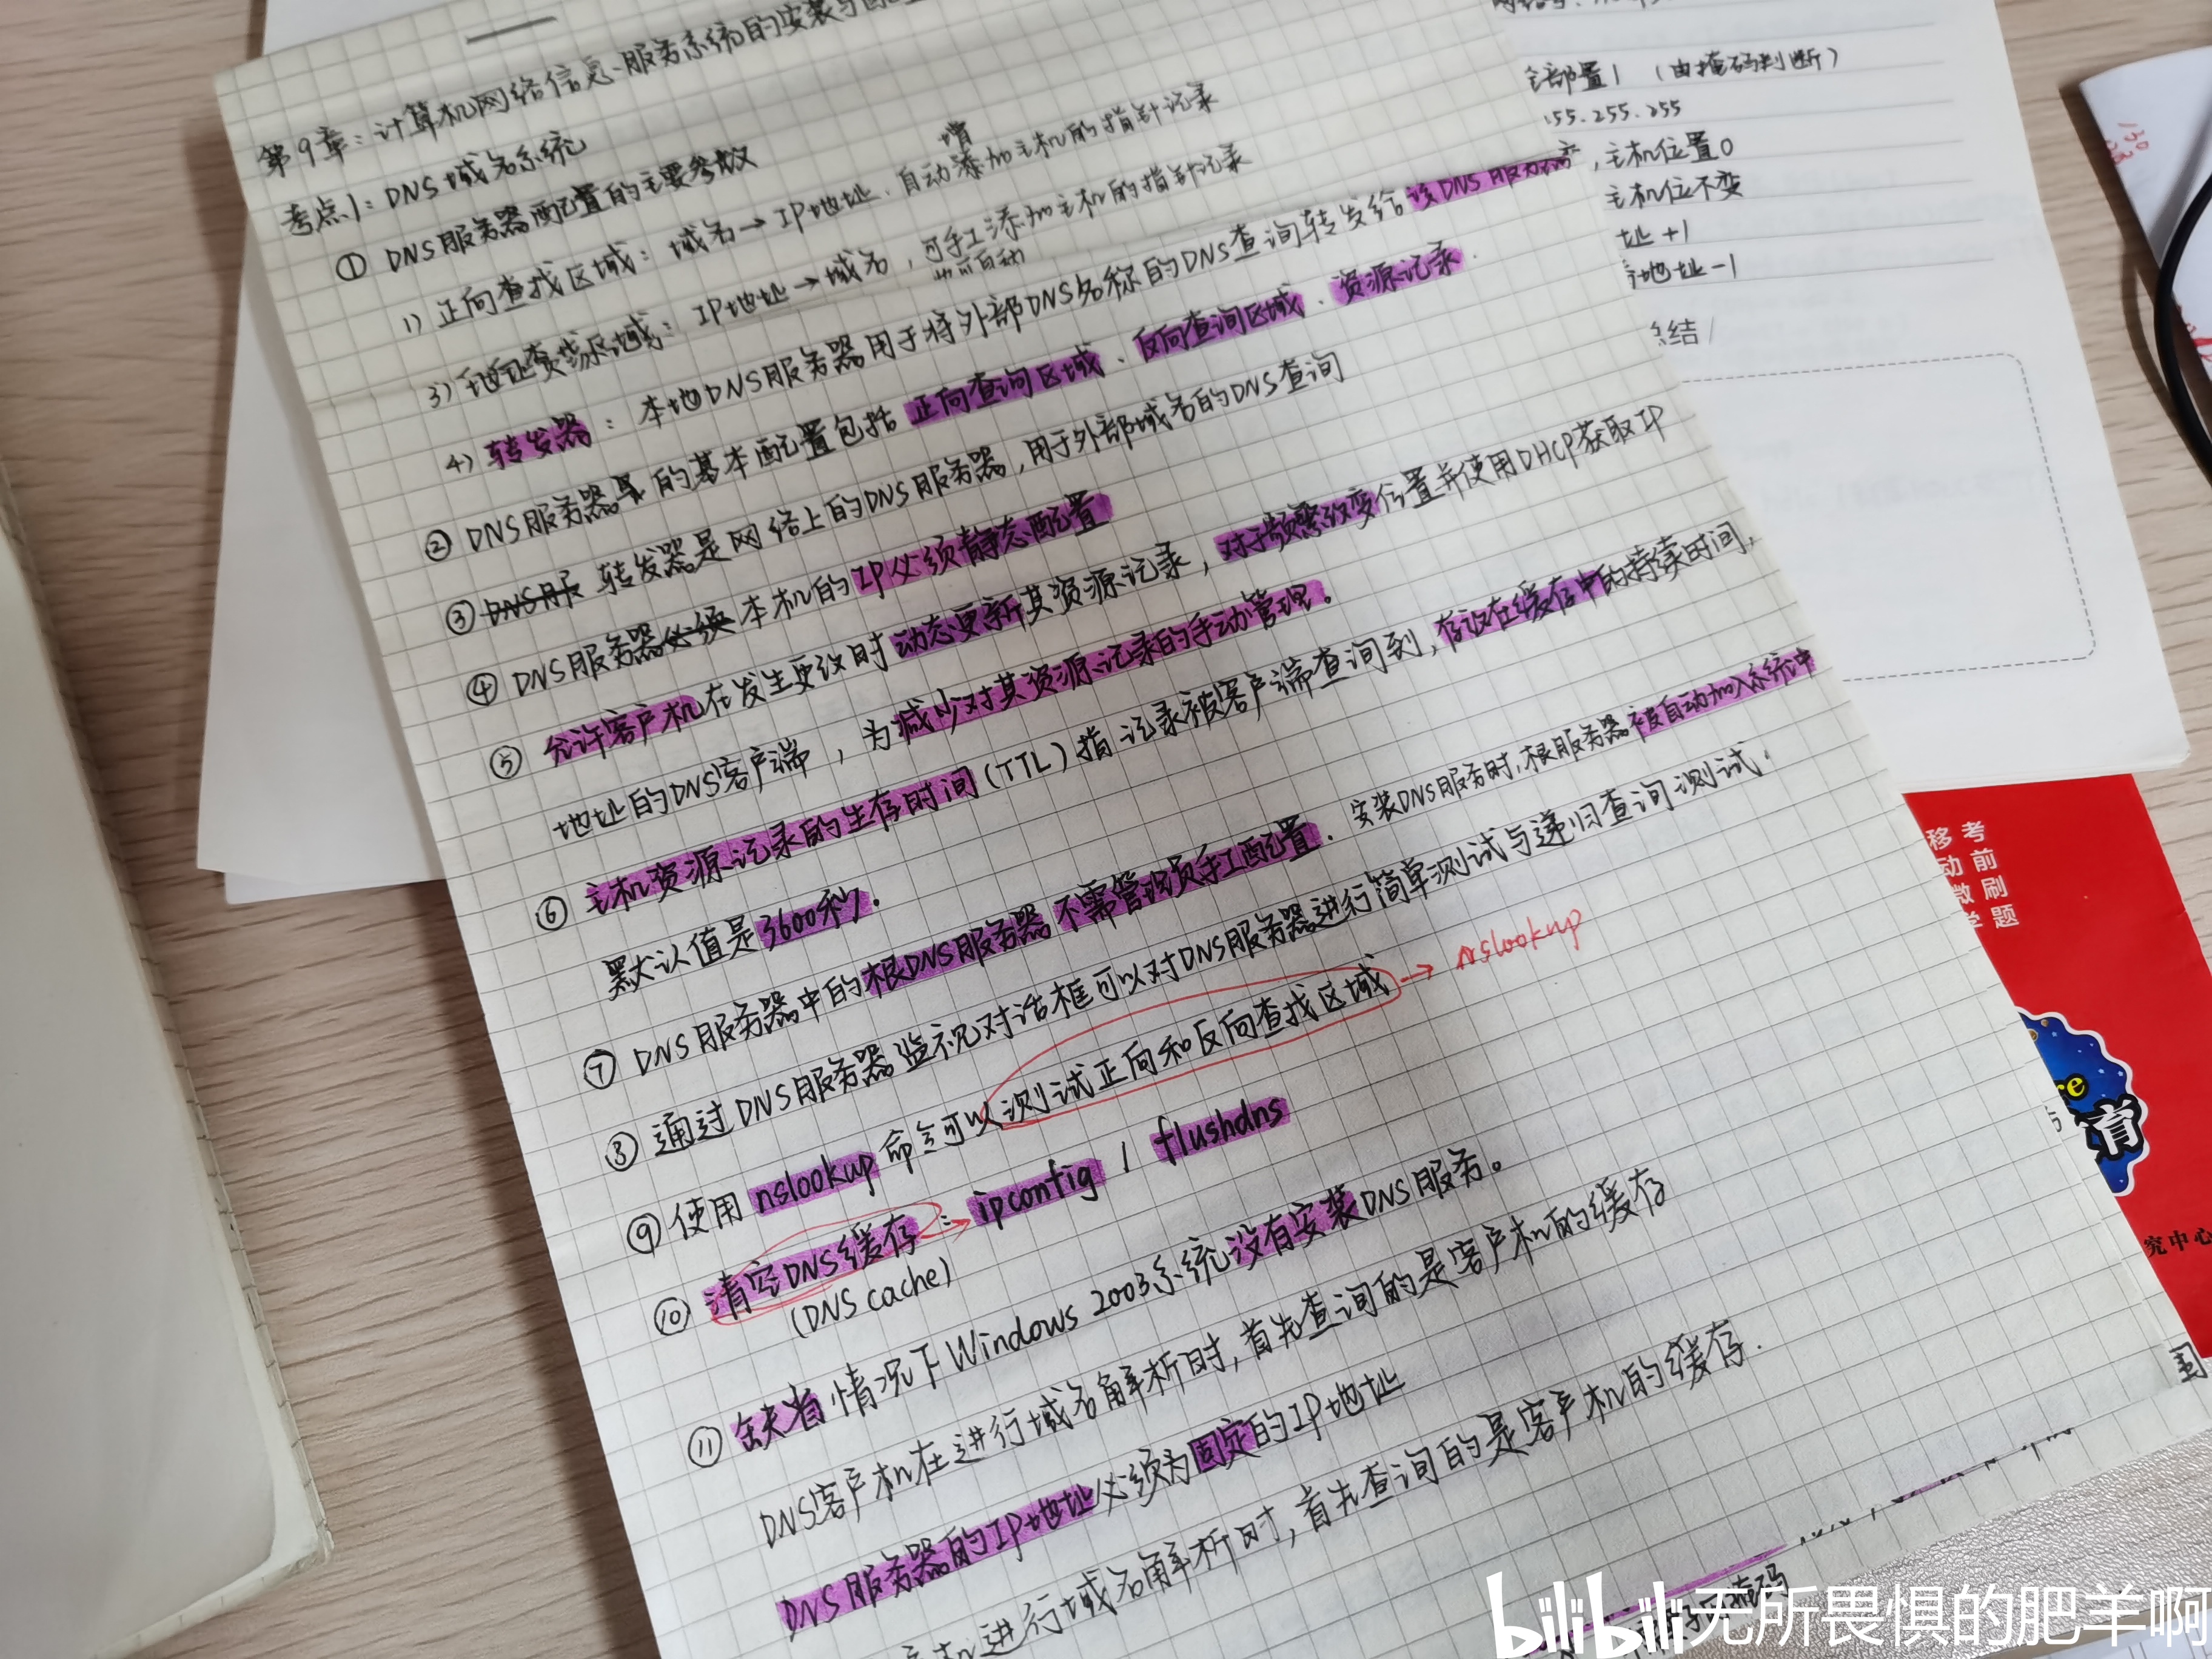 第9章：计算机网络信息服务系统的安装与配
考点1：DNS域名系统
① DNS服务器配置的主要参数
1）正向查找区域：域名→IP地址，自动添加主机的指针记录
增
3）区域：IP地址→域名，可手工添加主机的指针记录
也可自动
4）转发器：本地DNS服务器用于将外部DNS名称的DNS查询转发给该DNS服务器
② DNS服务器的基本配置包括正向查询区域、反向查询区域、资源记录.
③ 转发器是网络上的DNS服务器，用于外部域名的DNS查询
④ DNS服务器本机的IP必须静态配置
⑤ 允许客户机在发生更改时动态更新其资源记录，对于频繁改变位置并使用DHCP获取IP
地址的DNS客户端，为减少对其资源记录的手动管理。
⑥ 主机资源记录的生存时间(TTL)指记录被客户端查询到，存放在缓存中的持续时间，
默认值是3600秒.
⑦ DNS服务器中的根DNS服务器不需管理员手工配置. 安装DNS服务时，根服务器被自动加入系统中
⑧ 通过DNS服务器监视对话框可以对DNS服务器进行简单测试与递归查询测试.
⑨ 使用nslookup命令可以测试正向和反向查找区域→nslookup
⑩ 清空DNS缓存：→ipconfig / flushdns
(DNS cache)
⑪ 缺省情况下Windows 2003系统没有安装DNS服务。
DNS客户机在进行域名解析时，首先查询的是客户机的缓存
DNS服务器的IP地址必须为固定的IP地址
进行域名解析时，首先查询的是客户机的缓存.
全部置1（由掩码判断）
55.255.255
，主机位置0
主机位不变
址+1
地址-1
总结/
移动微学
考前刷题
re
育
究中心
国
掩码
bilibili 无所畏惧的肥羊啊